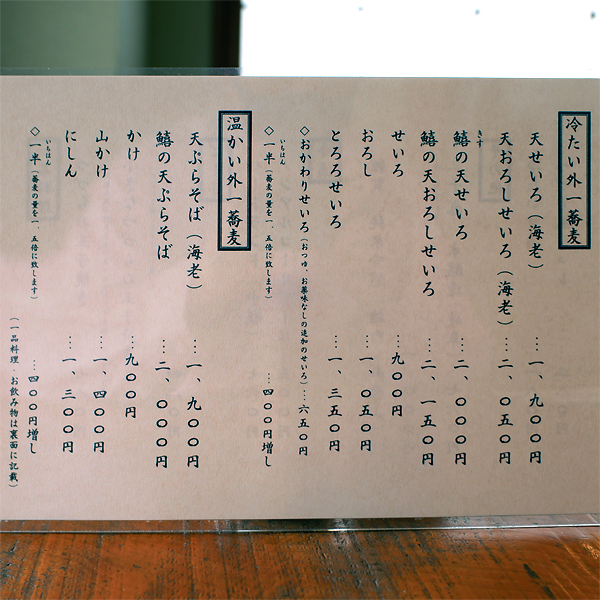 冷たい外一蕎麦
天せいろ（海老）…一、九〇〇円
天おろしせいろ（海老）…二、〇五〇円
鱚の天せいろ…二、〇〇〇円
きす
鱚の天おろしせいろ…二、一五〇円
せいろ…九〇〇円
おろし…一、〇五〇円
とろろせいろ…一、三五〇円
◇おかわりせいろ（おつゆ、お薬味なしの追加のせいろ）…六五〇円
◇一半（蕎麦の量を一、五倍に致します）…四〇〇円増し
いちはん
温かい外一蕎麦
天ぷらそば（海老）…一、九〇〇円
鱚の天ぷらそば…二、〇〇〇円
かけ…九〇〇円
山かけ…一、四〇〇円
にしん…一、三〇〇円
◇一半（蕎麦の量を一、五倍に致します）…四〇〇円増し
いちはん
（一品料理・お飲み物は裏面に記載）